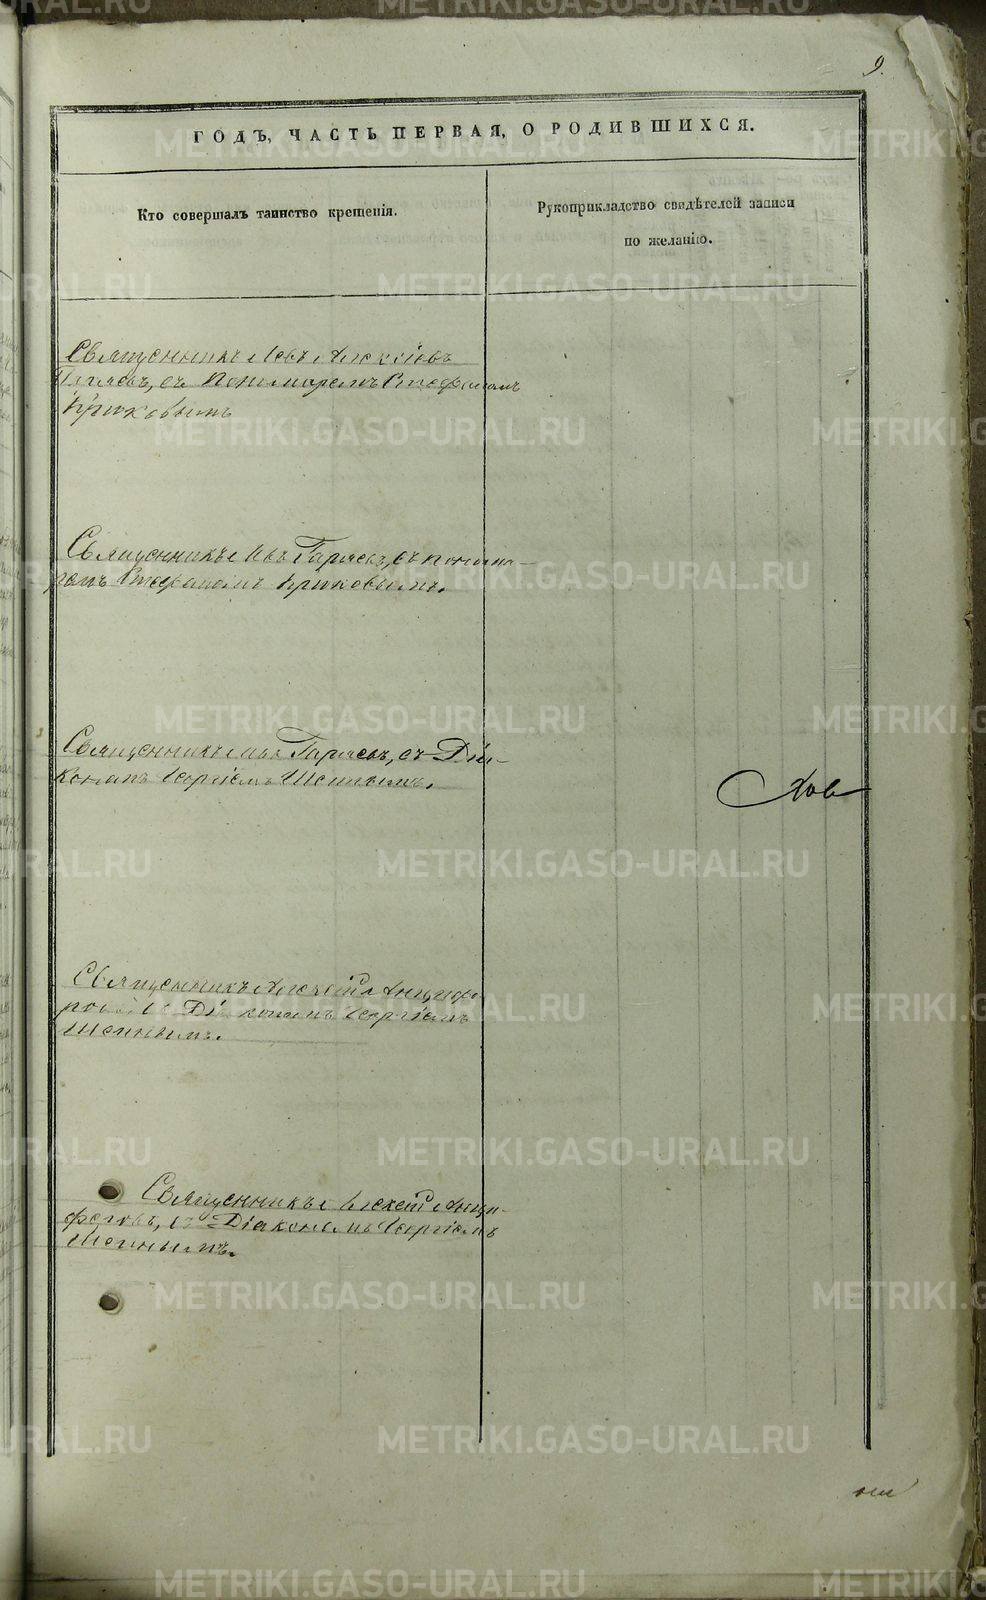 9.
ГОДЪ, ЧАСТЬ ПЕРВАЯ, О РОДИВШИХСЯ.
Кто совершалъ таинство крещенія.
Рукоприкладство свидѣтелей записи
по желанію.
Священникъ Левъ Алексіевъ
Гаряевъ, съ Пономаремъ Стефаномъ
Крюковымъ
Священникъ Левъ Гаряевъ, съ понома-
ремъ Стефаномъ Крюковымъ.
Священникъ Левъ Гаряевъ, съ Діа-
кономъ Георгіемъ
Священникъ Алексій Анциф
Діакономъ Георгіемъ
Священникъ Алексій Анци-
феровъ, съ Діакономъ Георгіемъ
METRIKI.GASO-URAL.RU